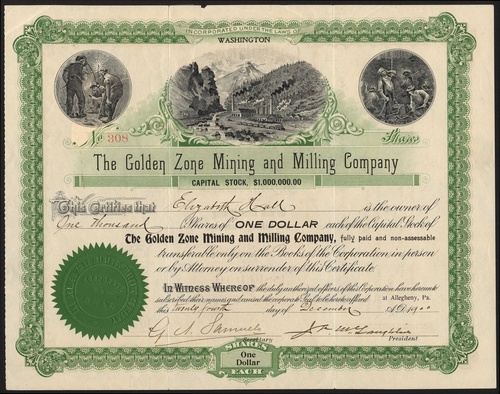 INCORPORATED UNDER THE LAWS OF
WASHINGTON
No 308
Shares
The Golden Zone Mining and Milling Company
CAPITAL STOCK, $1,000,000.00
This Certifies that Elizabeth Hall is the owner of
One Thousand Shares of ONE DOLLAR each of the Capital Stock of
The Golden Zone Mining and Milling Company, fully paid and non-assessable
transferable only on the Books of the Corporation in person
or by Attorney on surrender of this Certificate.
In Witness Whereof the duly authorized officers of this Corporation have hereunto
subscribed their names and caused the corporate Seal to be hereto affixed at Allegheny, Pa.
this twenty fourth day of December A.D. 1900
G. A. Samuels
Secretary
McLaughlin
President
SHARES
One
Dollar
EACH